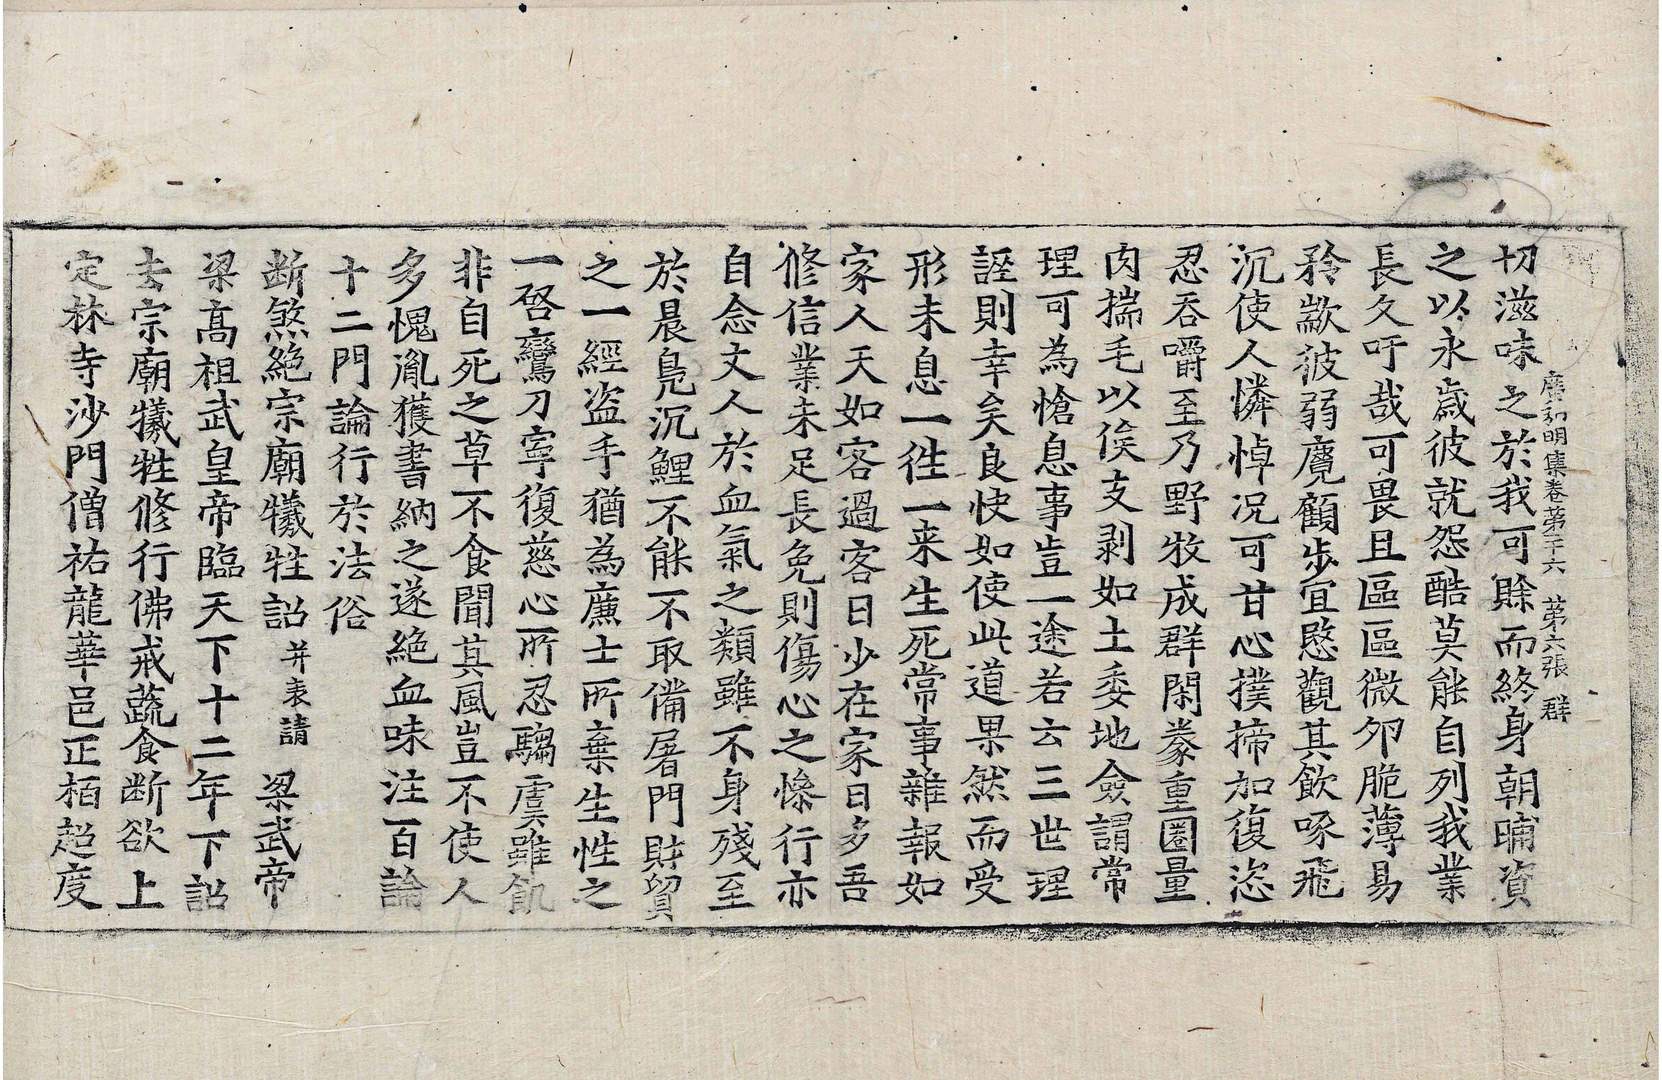 廣弘明集卷第二十六 第六張 群
切滋味之於我可賒而終身朝晡資
之以永歲彼就怨酷莫能自列我業
長久吁哉可畏且區區微夘脆薄易
矜歠彼弱麑顧步宜愍觀其飲啄飛
沉使人憐悼况可甘心撲揥加復恣
忍吞嚼至乃野牧成群閑豢重圈量
肉揣毛以俟支剥如土委地僉謂常
理可為愴息事豈一途若云三世理
誣則幸矣良快如使此道果然而受
形未息一徃一来生死常事雜報如
家人天如客過客日少在家日多吾
修信業未足長免則傷心之慘行亦
自念丈人於血氣之類雖不身殘至
於晨鳧沉鯉不能不取備屠門財貿
之一經盗手猶為廉士所棄生性之
一啓鸞刀寧復慈心所忍騶虞雖飢
非自死之草不食聞其風豈不使人
多愧胤獲書納之遂絶血味注百論
十二門論行於法俗
断煞絶宗廟犧牲詔 并表請 梁武帝
梁髙祖武皇帝臨天下十二年下詔
去宗廟犧牲修行佛戒蔬食断欲上
定林寺沙門僧祐龍華邑正栢超度